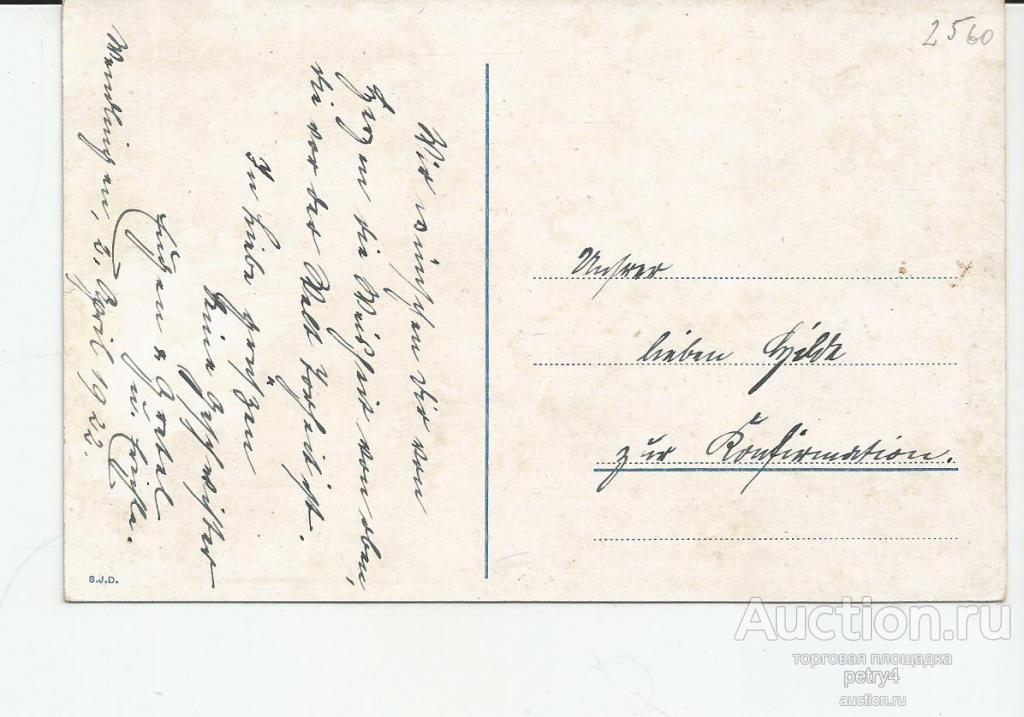 2560
Wir wünschen dir von
Herzen die Weisheit von oben,
die vor der Welt Torheit ist.
In Liebe grüßen
Deine Geschwister
Eugen & Gretel
u.
Wendlingen, 2. April 1922.
Unsrer
lieben Hilde
zur Konfirmation.
S.J.D.
Auction.ru
торговая площадка
petry4
auction.ru